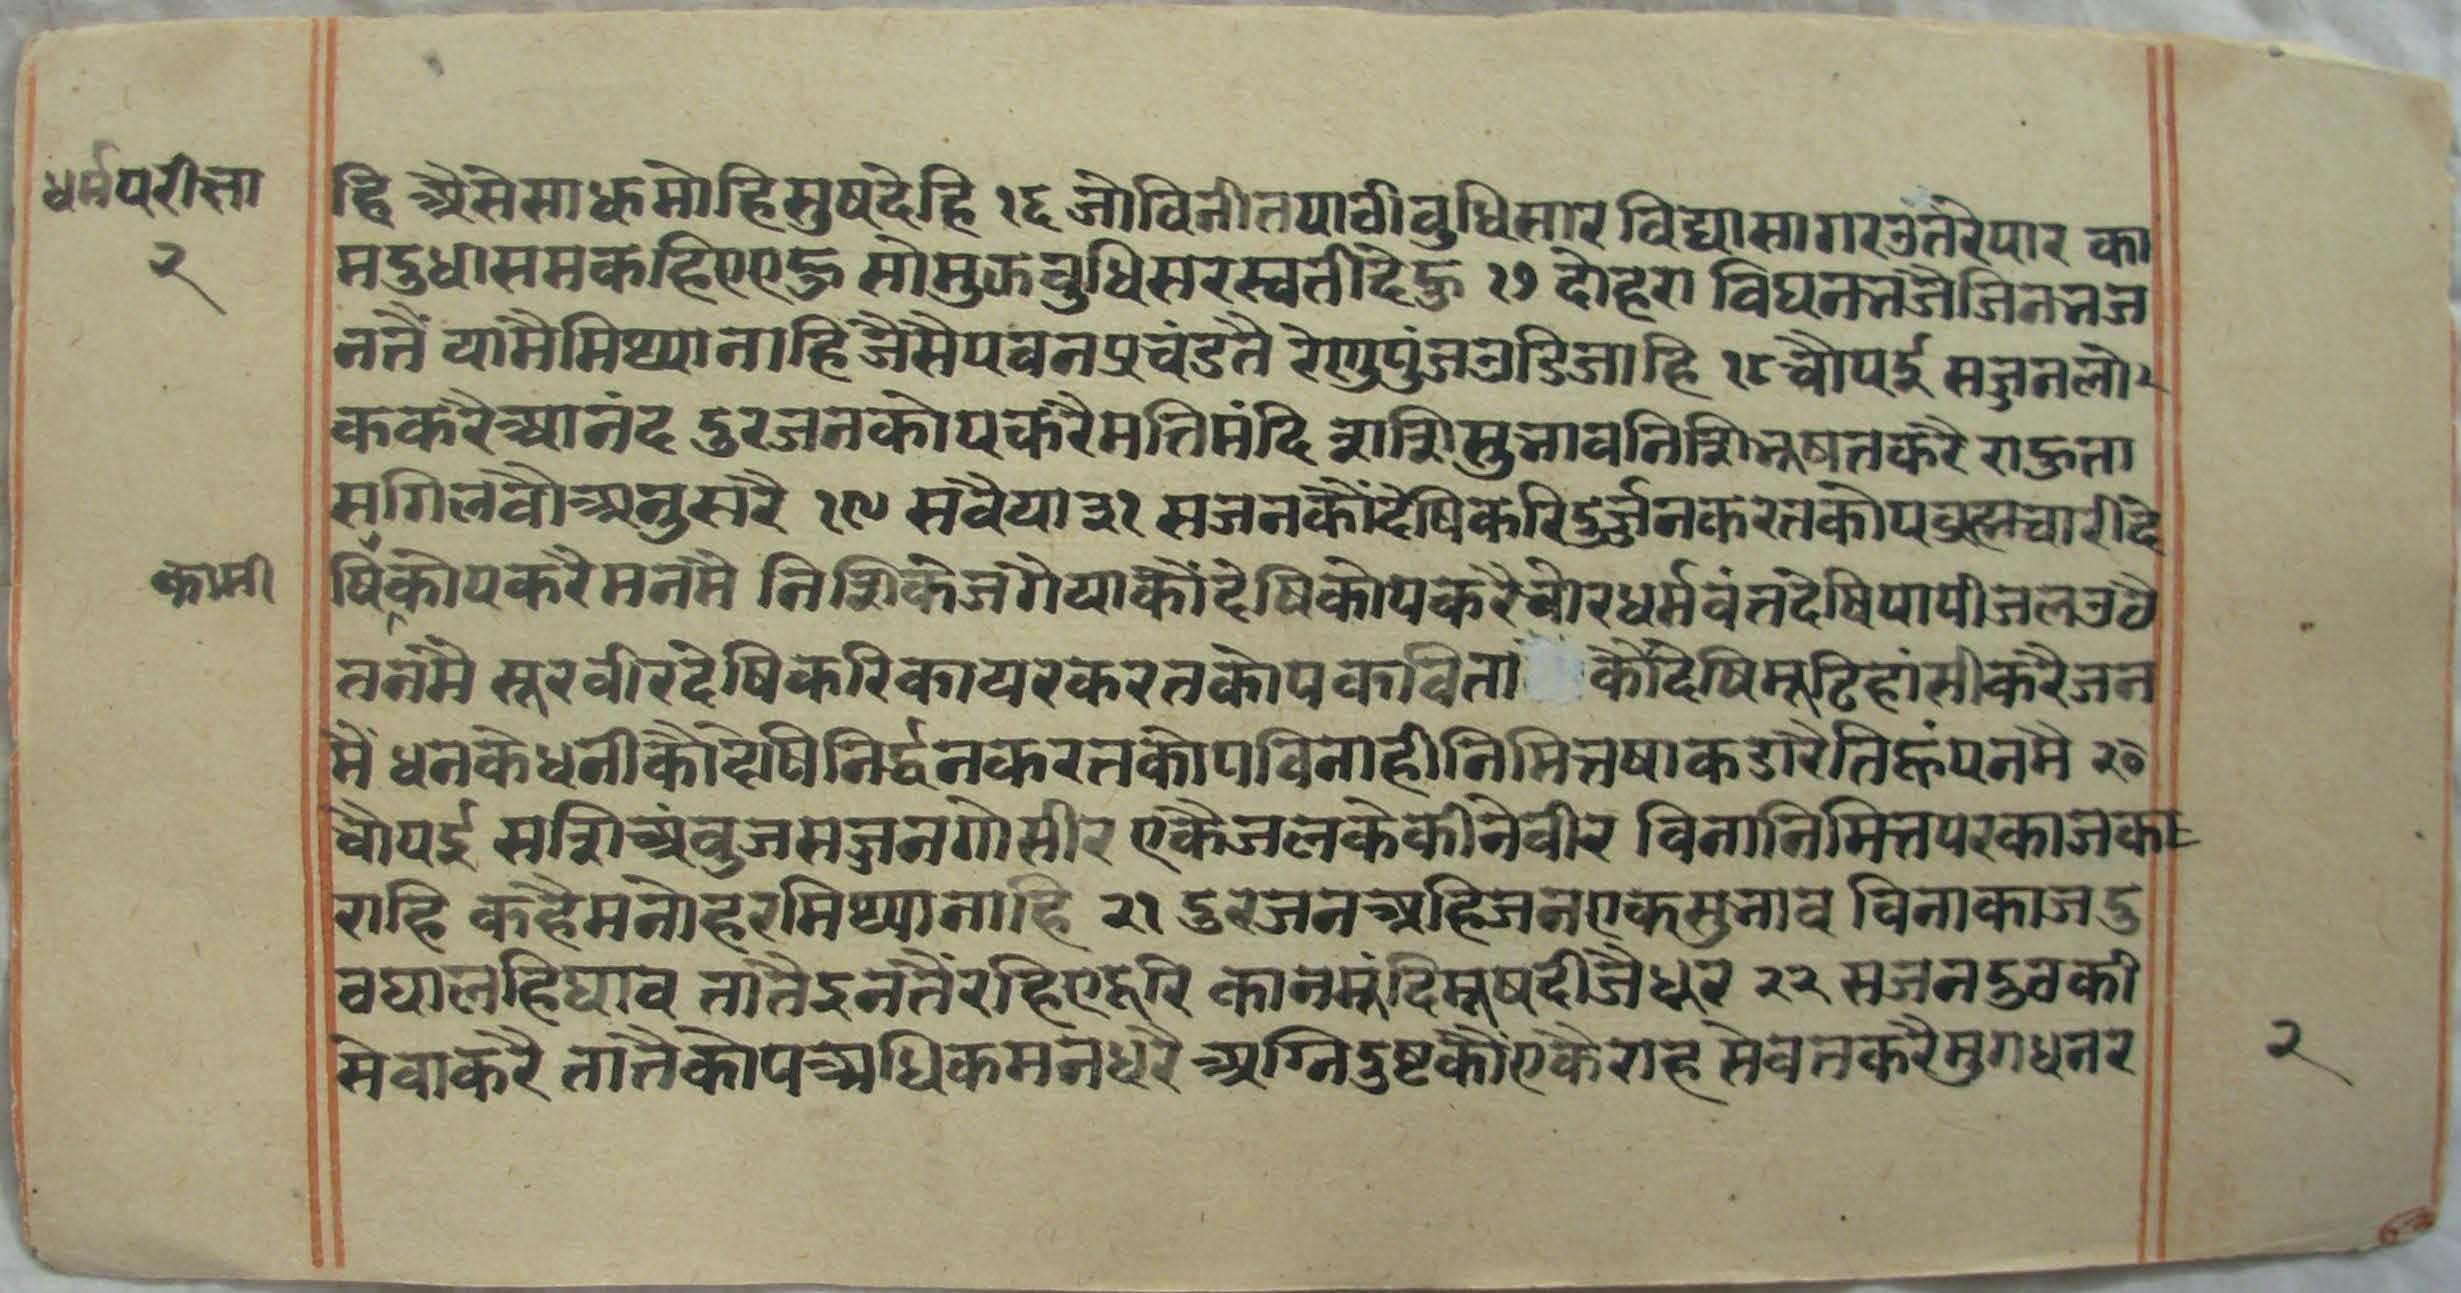 धर्मपरीक्षा
२
हि अैसेसाधमोहिसुषदेहि १६ जोविनीतपावीवुधिसार विद्यासागरउतरेपार का
मदुधासमकहिएएहु सोमुझवुधिसरस्वतीदेहु १७ दोहरा विघनतजैजिनतज
नतैं यामैमिथ्यानाहि जैसैपवनप्रचंडतै रेणुपुंजउडिजाहि १८ चौपई सज्जनलो
ककरैआनंद दुरजनकोपकरैमतिमंदि शशिसुभावनिशिभूषनकरै राहुता
सगिलवौअनुसरै १९ सवैया ३१ सजनकौंदेषिकरिदुर्ज्जनकरतकोपव्रह्मचारीदे
कामी
षिकोपकरैमनमै निशिकेजगैयाकौंदेषिकोपकरैचोरधर्मवंतदेषिपापीजलउठै
तनमै सूरवीरदेषिकरिकायरकरतकोपकविता कौंदेषिमूढिहांसीकरैजन
मैं धनकेधनीकौदेषिनिर्द्धनकरतकोपविनाहीनिमित्तषाकडारैतिहूंपनमै २०
चौपई सशिअंवुजसज्जनगोसीर एकैजलकेकीनेवीर विनानिमित्तपरकाजक
राहि कहैमनोहरमिथ्यानाहि २१ दुरजनअहिजनएकसुभाव विनाकाजदु
वघालहिघाव तातैइनतैंरहिएदूरि कानमूंदिमूषदीजैधूर २२ सजनदुवकी
सेवाकरै तातैकोपअधिकमनधरै अग्निदुष्टकौंएकैराह सेवतकरैमुगधनर
२